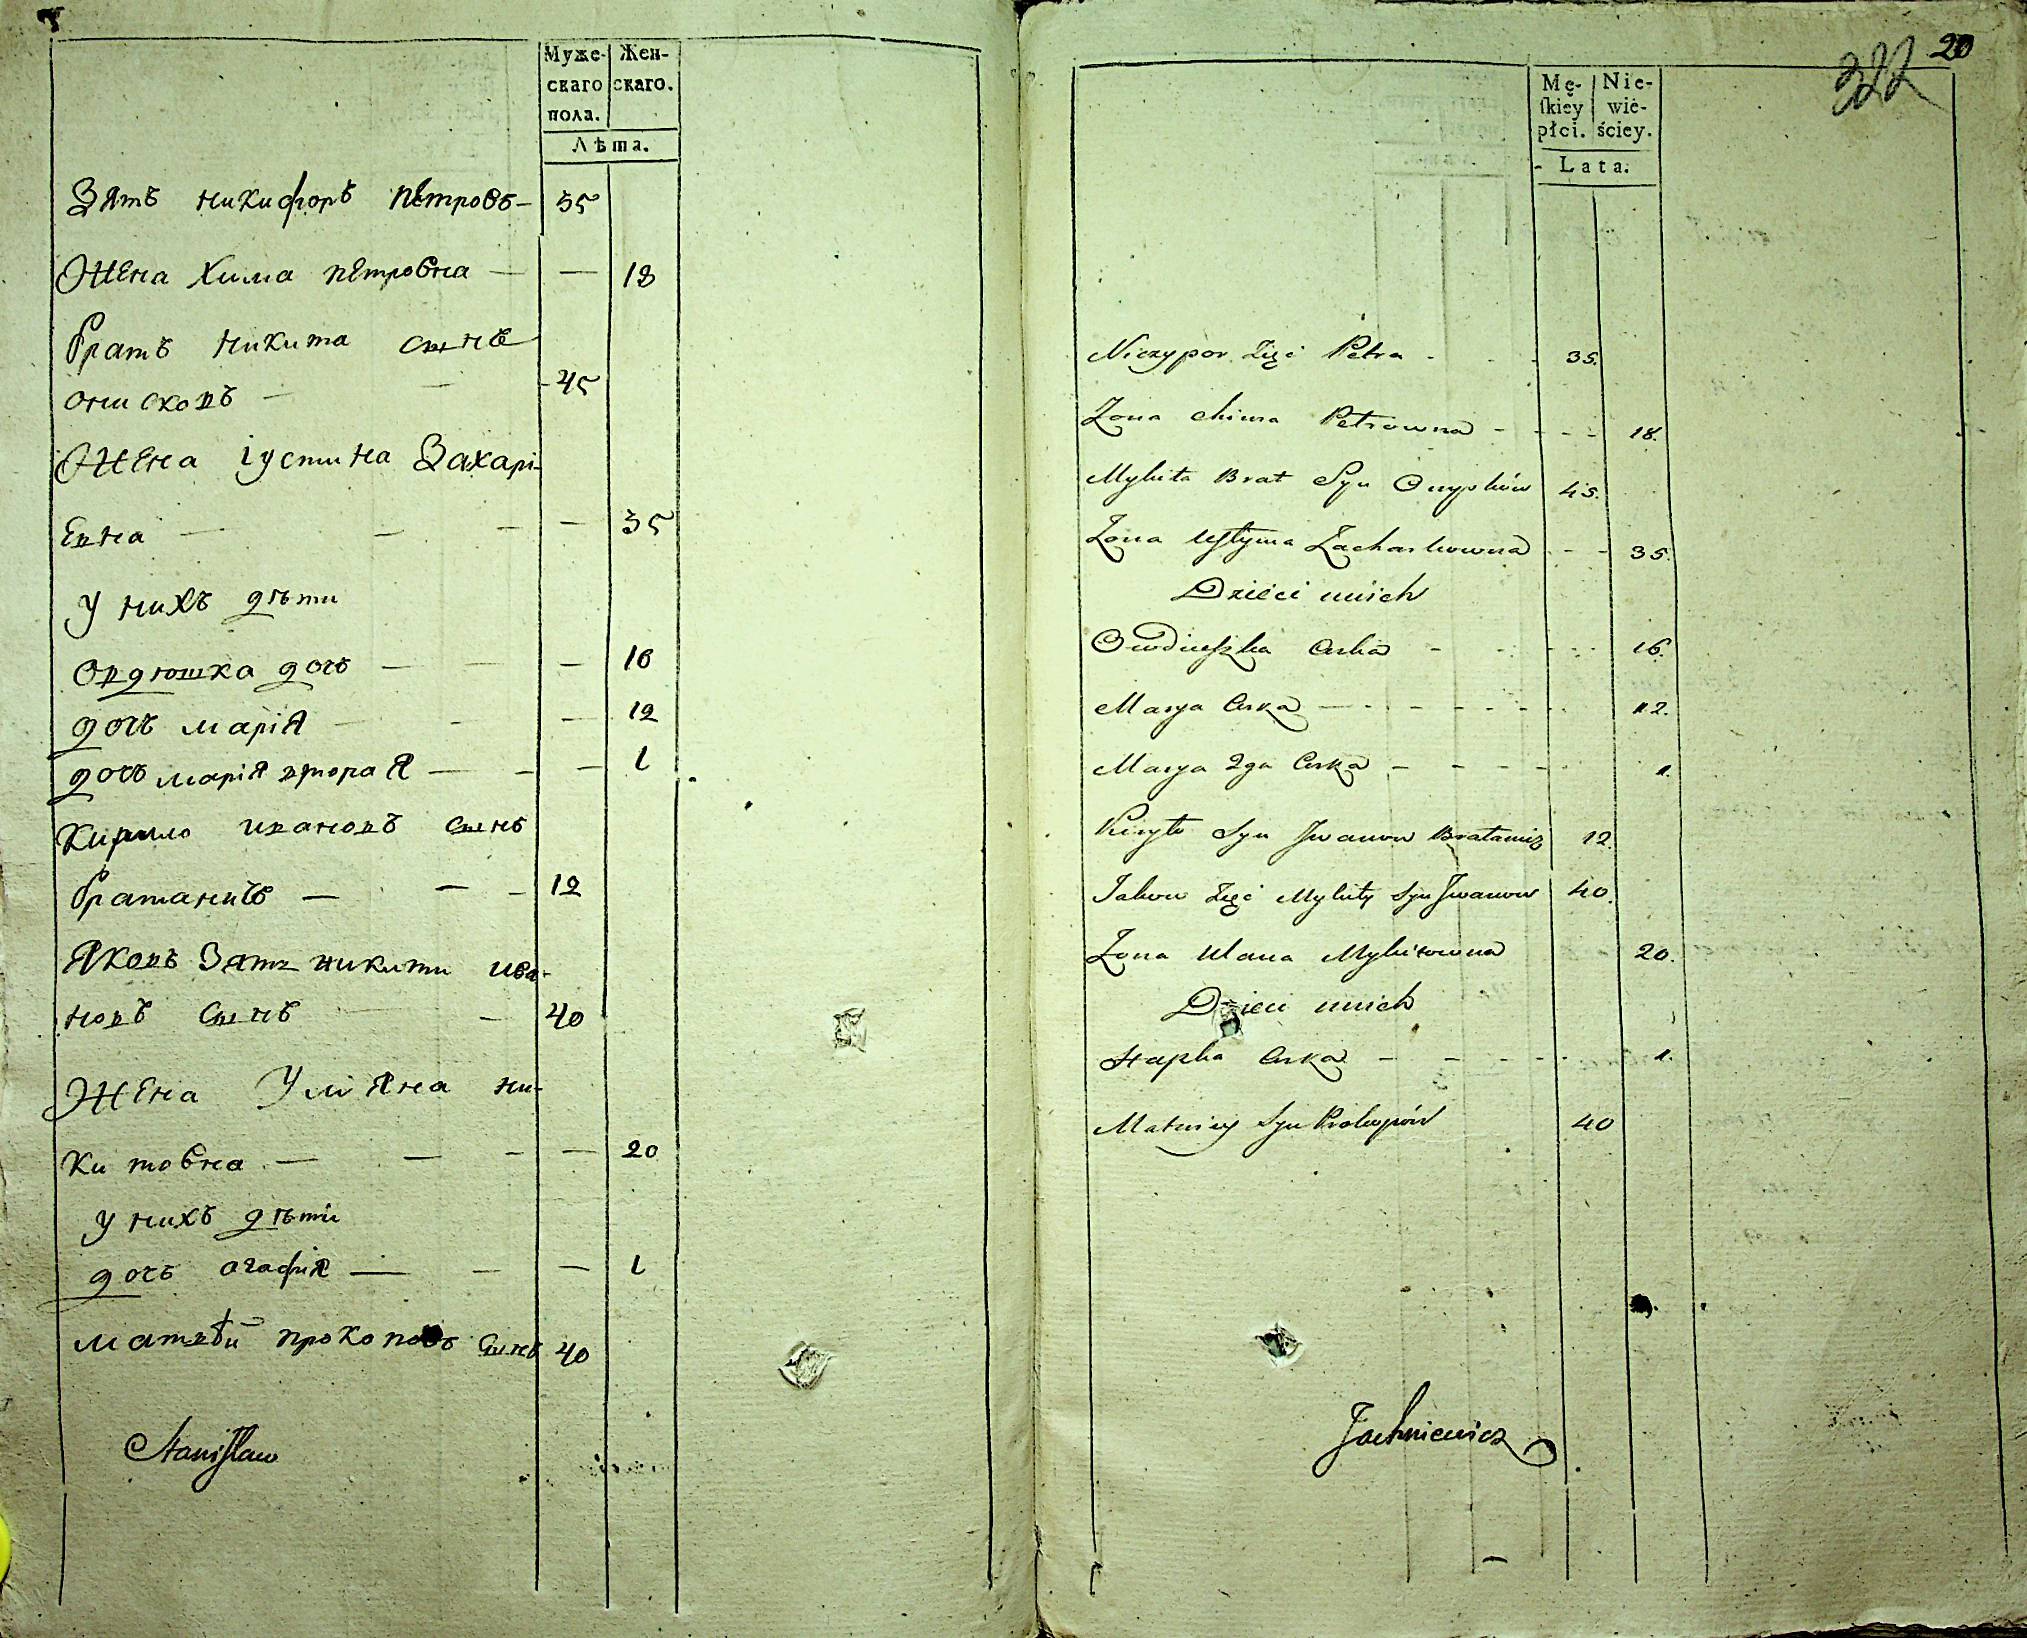 Муже-
скаго
пола.
Жен-
скаго.
Лѣта.
Зять никифоръ петровъ — 35
Жена Хима петровна — — 18
братъ никита сынъ
онисковъ — — 45
Жена іустина Захарі-
евна — — — — 35
у нихъ дѣти
овдюшка дочь — — — 16
дочь марія — — — 12
дочь марія втораЯ — — — 1
Кирило ивановъ сынъ
братаничъ — — — 12
Яковъ Зять никиты ива-
новъ сынъ — — 40
Жена Уліяна ни-
китовна — — — — 20
у нихъ дѣти
дочь агафія — — — 1
матвѣй прокоповъ сынъ 40
Stanisław
20
322
Mę-
skiey
płci.
Nie-
wie-
ściey.
Lata.
Niczypor Zięć Petra - - - 35.
Zona Chima Petrowna - - - - 18.
Mykita Brat Syn Onyśków 45.
Zona Ustyma Zacharkowna - - - 35.
Dzieci unich
Owdiuszka Curka - - - - - 16.
Marya Curka — - - - - - - 12.
Marya 2ga Curka - - - - - 1.
Kiryło Syn Jwanow Bratanicz 12.
Jakow Zięć Mykity Syn Jwanow 40.
Zona Ulana Mykitowna 20.
Dzieci unich
Hapka Curka - - - - 1.
Matwiey Syn Prokopów 40
Jachniewicz